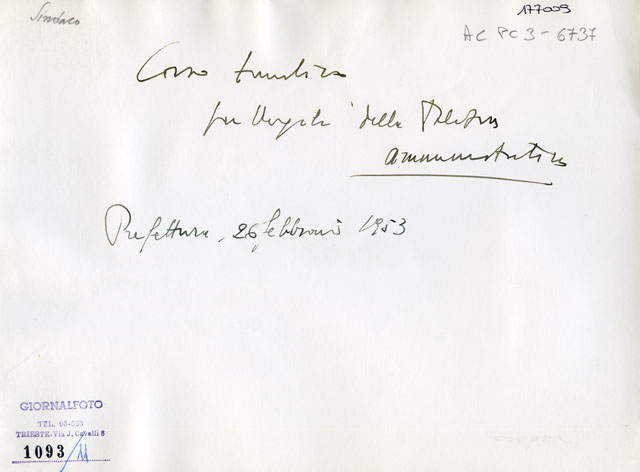 Sindaco
177009
AC PC 3 - 6737
Corso
per Vigili della Polizia
amministrativa
Prefettura, 26 febbraio 1953
GIORNALFOTO
TEL. 93-323
TRIESTE-Via J. Cavalli 8
1093/11